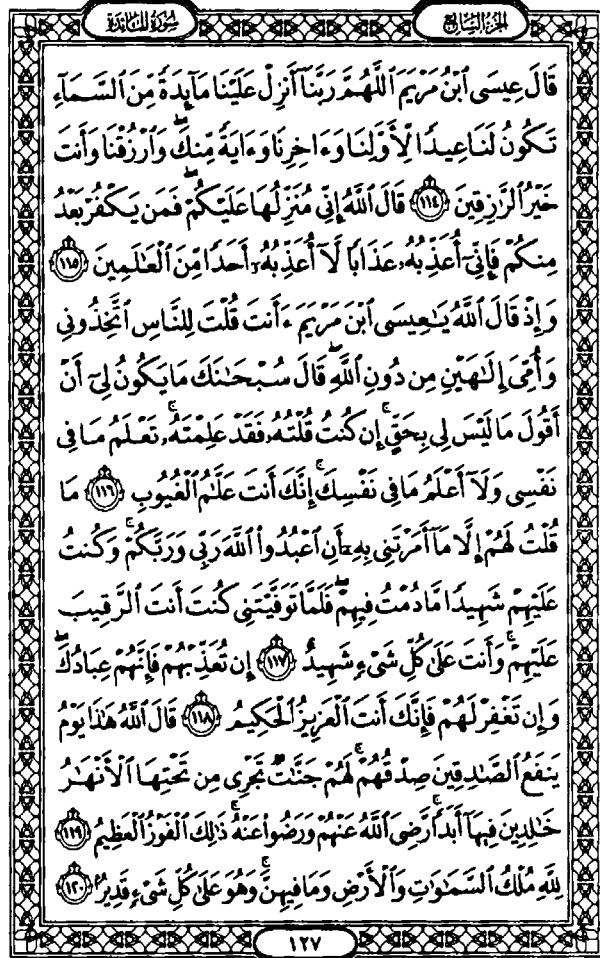 الجزء السابع
سورة المائدة
قَالَ عِيسَى ٱبْنُ مَرْيَمَ ٱللَّهُمَّ رَبَّنَآ أَنزِلْ عَلَيْنَا مَآئِدَةً مِّنَ ٱلسَّمَآءِ
تَكُونُ لَنَا عِيدًا لِّأَوَّلِنَا وَءَاخِرِنَا وَءَايَةً مِّنكَۖ وَٱرْزُقْنَا وَأَنتَ
خَيْرُ ٱلرَّٰزِقِينَ ١١٤ قَالَ ٱللَّهُ إِنِّى مُنَزِّلُهَا عَلَيْكُمْۖ فَمَن يَكْفُرْ بَعْدُ
مِنكُمْ فَإِنِّىٓ أُعَذِّبُهُۥ عَذَابًا لَّآ أُعَذِّبُهُۥٓ أَحَدًا مِّنَ ٱلْعَٰلَمِينَ ١١٥
وَإِذْ قَالَ ٱللَّهُ يَٰعِيسَى ٱبْنَ مَرْيَمَ ءَأَنتَ قُلْتَ لِلنَّاسِ ٱتَّخِذُونِى
وَأُمِّىَ إِلَٰهَيْنِ مِن دُونِ ٱللَّهِۖ قَالَ سُبْحَٰنَكَ مَا يَكُونُ لِىٓ أَنْ
أَقُولَ مَا لَيْسَ لِى بِحَقٍّۚ إِن كُنتُ قُلْتُهُۥ فَقَدْ عَلِمْتَهُۥۚ تَعْلَمُ مَا فِى
نَفْسِى وَلَآ أَعْلَمُ مَا فِى نَفْسِكَۚ إِنَّكَ أَنتَ عَلَّٰمُ ٱلْغُيُوبِ ١١٦ مَا
قُلْتُ لَهُمْ إِلَّا مَآ أَمَرْتَنِى بِهِۦٓ أَنِ ٱعْبُدُوا۟ ٱللَّهَ رَبِّى وَرَبَّكُمْۚ وَكُنتُ
عَلَيْهِمْ شَهِيدًا مَّا دُمْتُ فِيهِمْۖ فَلَمَّا تَوَفَّيْتَنِى كُنتَ أَنتَ ٱلرَّقِيبَ
عَلَيْهِمْۚ وَأَنتَ عَلَىٰ كُلِّ شَىْءٍ شَهِيدٌ ١١٧ إِن تُعَذِّبْهُمْ فَإِنَّهُمْ عِبَادُكَۖ
وَإِن تَغْفِرْ لَهُمْ فَإِنَّكَ أَنتَ ٱلْعَزِيزُ ٱلْحَكِيمُ ١١٨ قَالَ ٱللَّهُ هَٰذَا يَوْمُ
يَنفَعُ ٱلصَّٰدِقِينَ صِدْقُهُمْۚ لَهُمْ جَنَّٰتٌ تَجْرِى مِن تَحْتِهَا ٱلْأَنْهَٰرُ
خَٰلِدِينَ فِيهَآ أَبَدًاۚ رَّضِىَ ٱللَّهُ عَنْهُمْ وَرَضُوا۟ عَنْهُۚ ذَٰلِكَ ٱلْفَوْزُ ٱلْعَظِيمُ ١١٩
لِلَّهِ مُلْكُ ٱلسَّمَٰوَٰتِ وَٱلْأَرْضِ وَمَا فِيهِنَّۚ وَهُوَ عَلَىٰ كُلِّ شَىْءٍ قَدِيرٌۢ ١٢٠
١٢٧